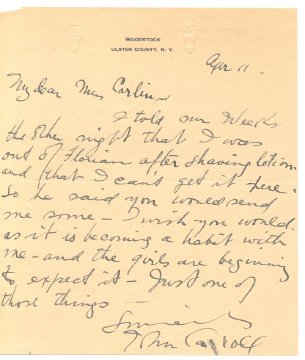 WOODSTOCK
ULSTER COUNTY, N. Y.
Apr 11 -
My dear Miss Carlin
I told Mr Weeks
the other night that I was
out of Florian after shaving lotion
and that I can't get it here -
So he said you would send
me some - I wish you would.
as it is becoming a habit with
me - and the girls are beginning
to expect it - Just one of
those things -
Sincerely
John Carroll